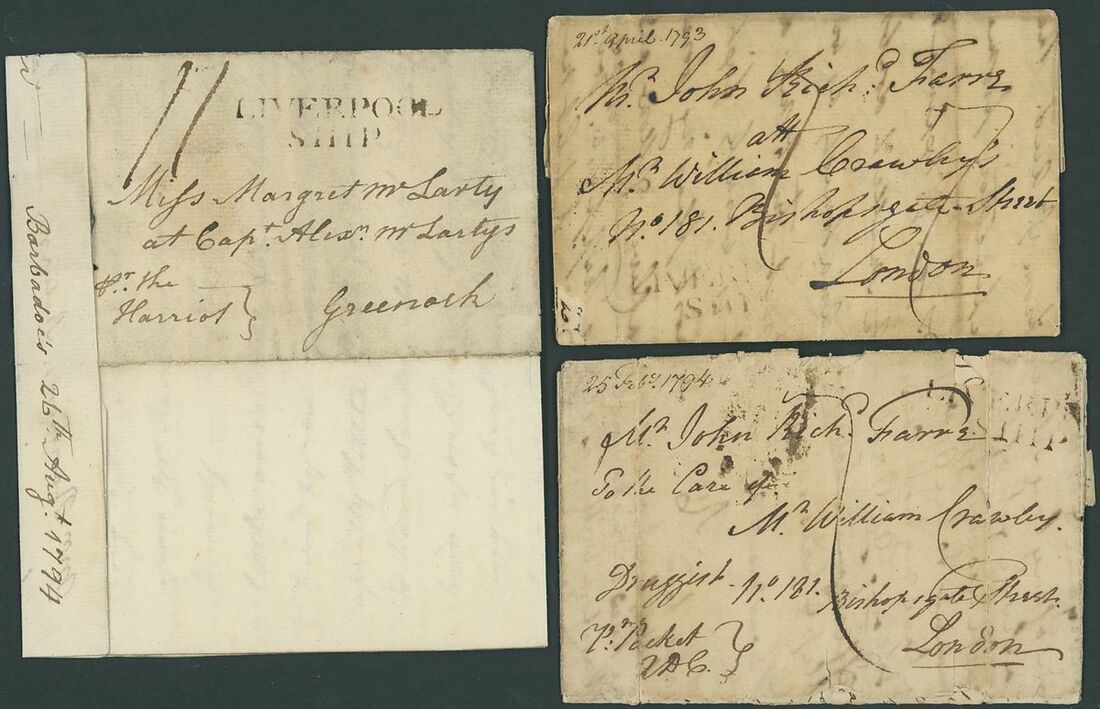 Barbadoes 26th Augt. 1794
11
LIVERPOOL
SHIP
Miss Margret Mc Larty
at Capt. Alexr. Mc Lartys
pr. the
Harriot
Greenock
21st April 1793
Mr. John Richd. Farre
att
Mr. William Crawley's
No 181. Bishopsgate Street
London
LIVERP
SHIP
25 Feby. 1794
LIVERP
SHIP
Mr. John Richd. Farre
To the Care of
Mr. William Crawley.
Druggist No. 181. Bishopsgate Street.
Pr. Packet
London